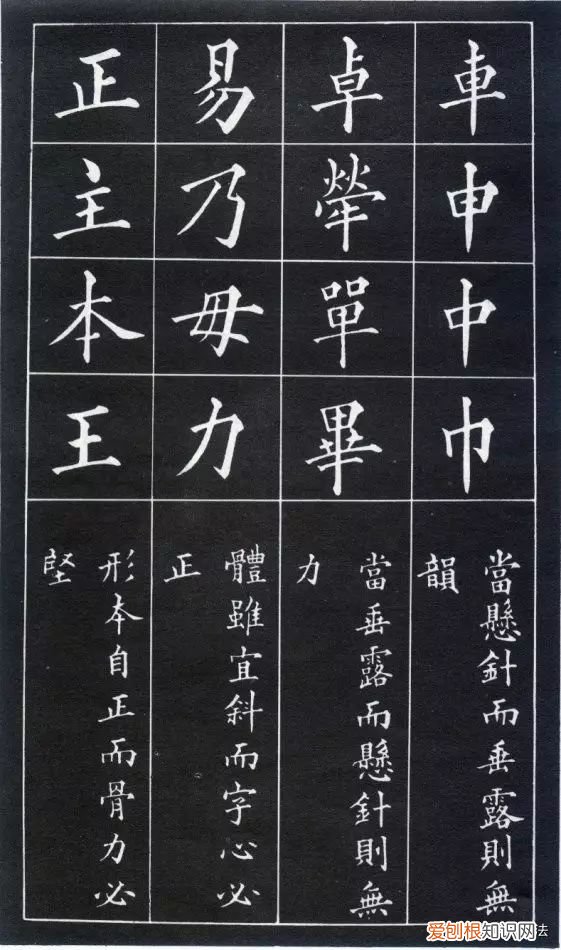 車申中巾
當懸針而垂露則無
韻
卓犖單畢
當垂露而懸針則無
力
易乃毋力
體雖宜斜而字心必
正
正主本王
形本自正而骨力必
堅
爱刨根知识网法